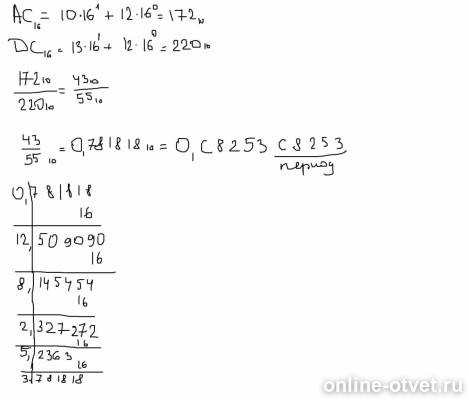 AC₁₆ = 10·16¹ + 12·16⁰ = 172₁₀
DC₁₆ = 13·16¹ + 12·16⁰ = 220₁₀
172₁₀/220₁₀ = 43₁₀/55₁₀
43/55₁₀ = 0,781818₁₀ = 0,C8253 C8253
период
0,781818
16
12,509090
16
8,145454
16
2,327272
16
5,2363
16
3,781818
online-otvet.ru